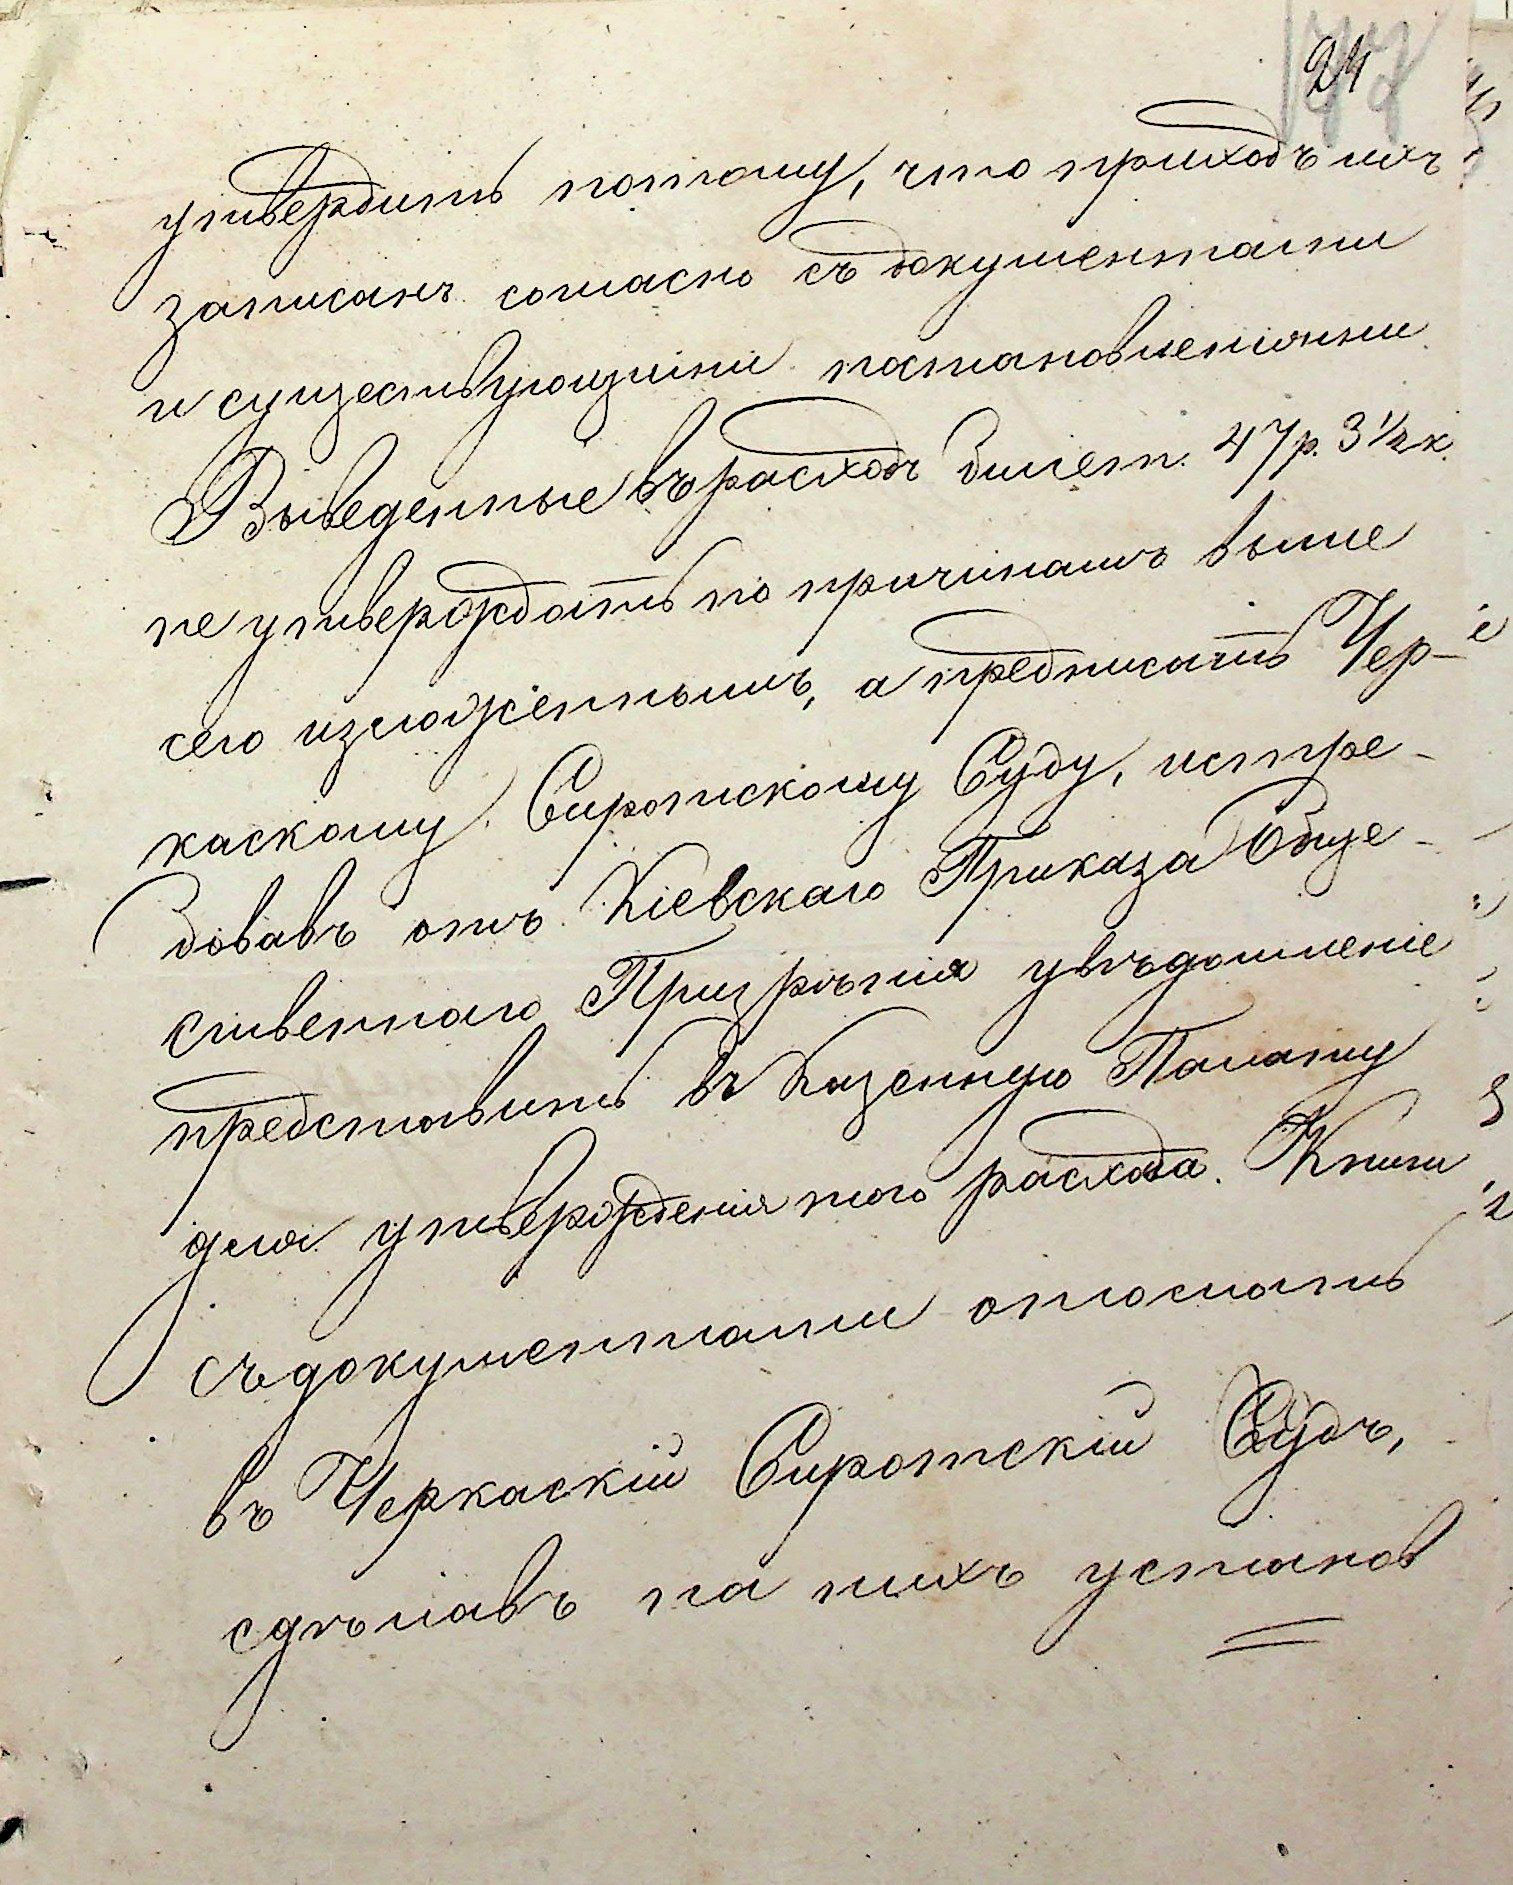 24
утвердить потому, что приходъ ихъ
записанъ согласно съ документами
и существующими постановленіями.
Выведенные въ расходъ билет. 47 р. 3 1/2 к.
не утверждать по причинамъ выше
сего изложеннымъ, а предписать Чер-
каскому Сиротскому Суду, истре-
бовавъ отъ Кіевскаго Приказа Обще-
ственнаго Призрѣнія увѣдомленіе
представить въ Казенную Палату
для утвержденія того расхода. Книги
съ документами отослать
въ Черкаскій Сиротскій Судъ,
сдѣлавъ на нихъ установ